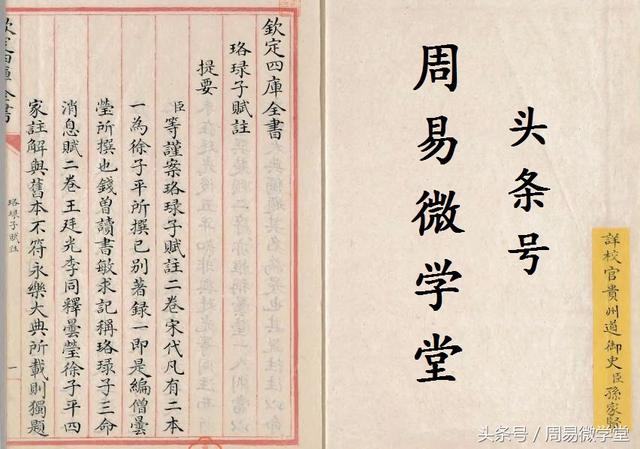 欽定四庫全書
珞琭子賦註
提要
臣等謹案珞琭子賦註二卷宋代凡有二本
一為徐子平所撰已別著錄一即是編僧曇
瑩所撰也錢曾讀書敏求記稱珞琭子三命
消息賦二卷王廷光李同釋曇瑩徐子平四
家註解與舊本不符永樂大典所載則獨題
欽定四庫全書
珞琭子賦註
一
头条号
周易微学堂
詳校官貴州道御史臣孫家賢
头条号 / 周易微学堂